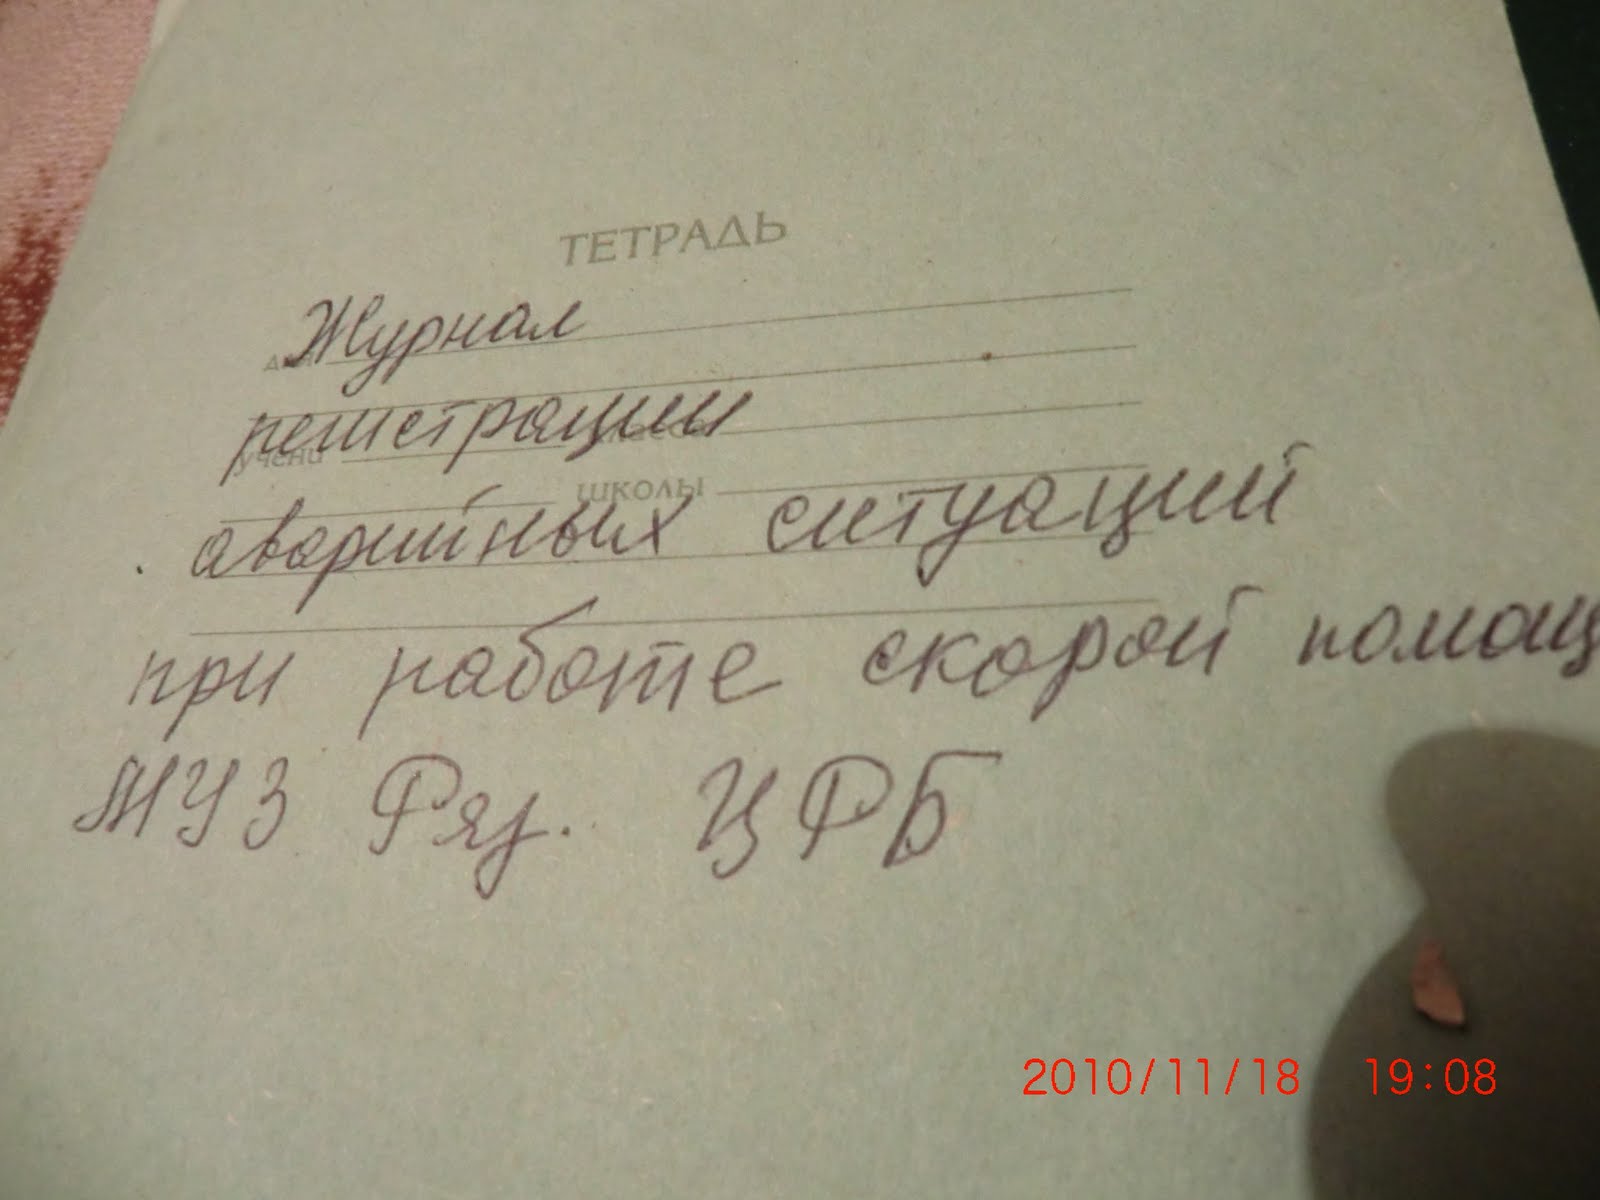 ТЕТРАДЬ
Журнал
регистрации
учени
школы
аварийных ситуаций
при работе скорой помощ
МУЗ Ряз. ЦРБ
2010/11/18 19:08